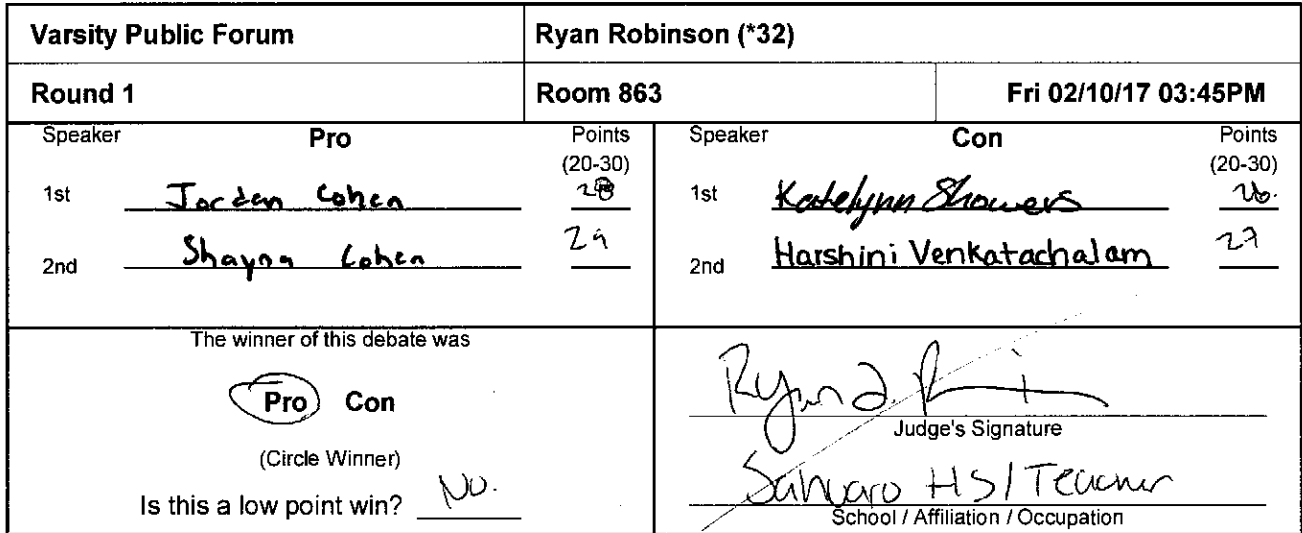 Varsity Public Forum
Ryan Robinson (*32)
Round 1
Room 863
Fri 02/10/17 03:45PM
Speaker Pro Points
(20-30)
1st Jordan Cohen 28
2nd Shayna Cohen 29
Speaker Con Points
(20-30)
1st Katelynn Showers 26.
2nd Harshini Venkatachalam 27
The winner of this debate was
Pro Con
(Circle Winner)
Is this a low point win? No.
Ryan
Judge's Signature
Sahuaro HS/Teacher
School / Affiliation / Occupation